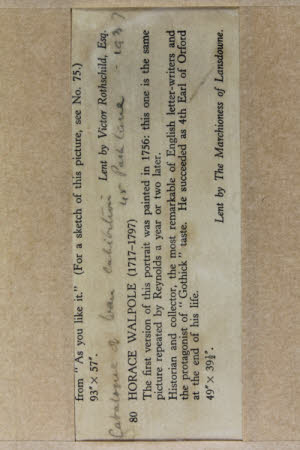 from “As you like it.” (For a sketch of this picture, see No. 75.)
93" × 57".
Lent by Victor Rothschild, Esq.
Catalogue of loan exhibition 45 Park Lane - 1937
80 HORACE WALPOLE (1717–1797)
The first version of this portrait was painted in 1756: this one is the same
picture repeated by Reynolds a year or two later.
Historian and collector, the most remarkable of English letter-writers and
the protagonist of “Gothick” taste. He succeeded as 4th Earl of Orford
at the end of his life.
49" × 39½".
Lent by The Marchioness of Lansdowne.